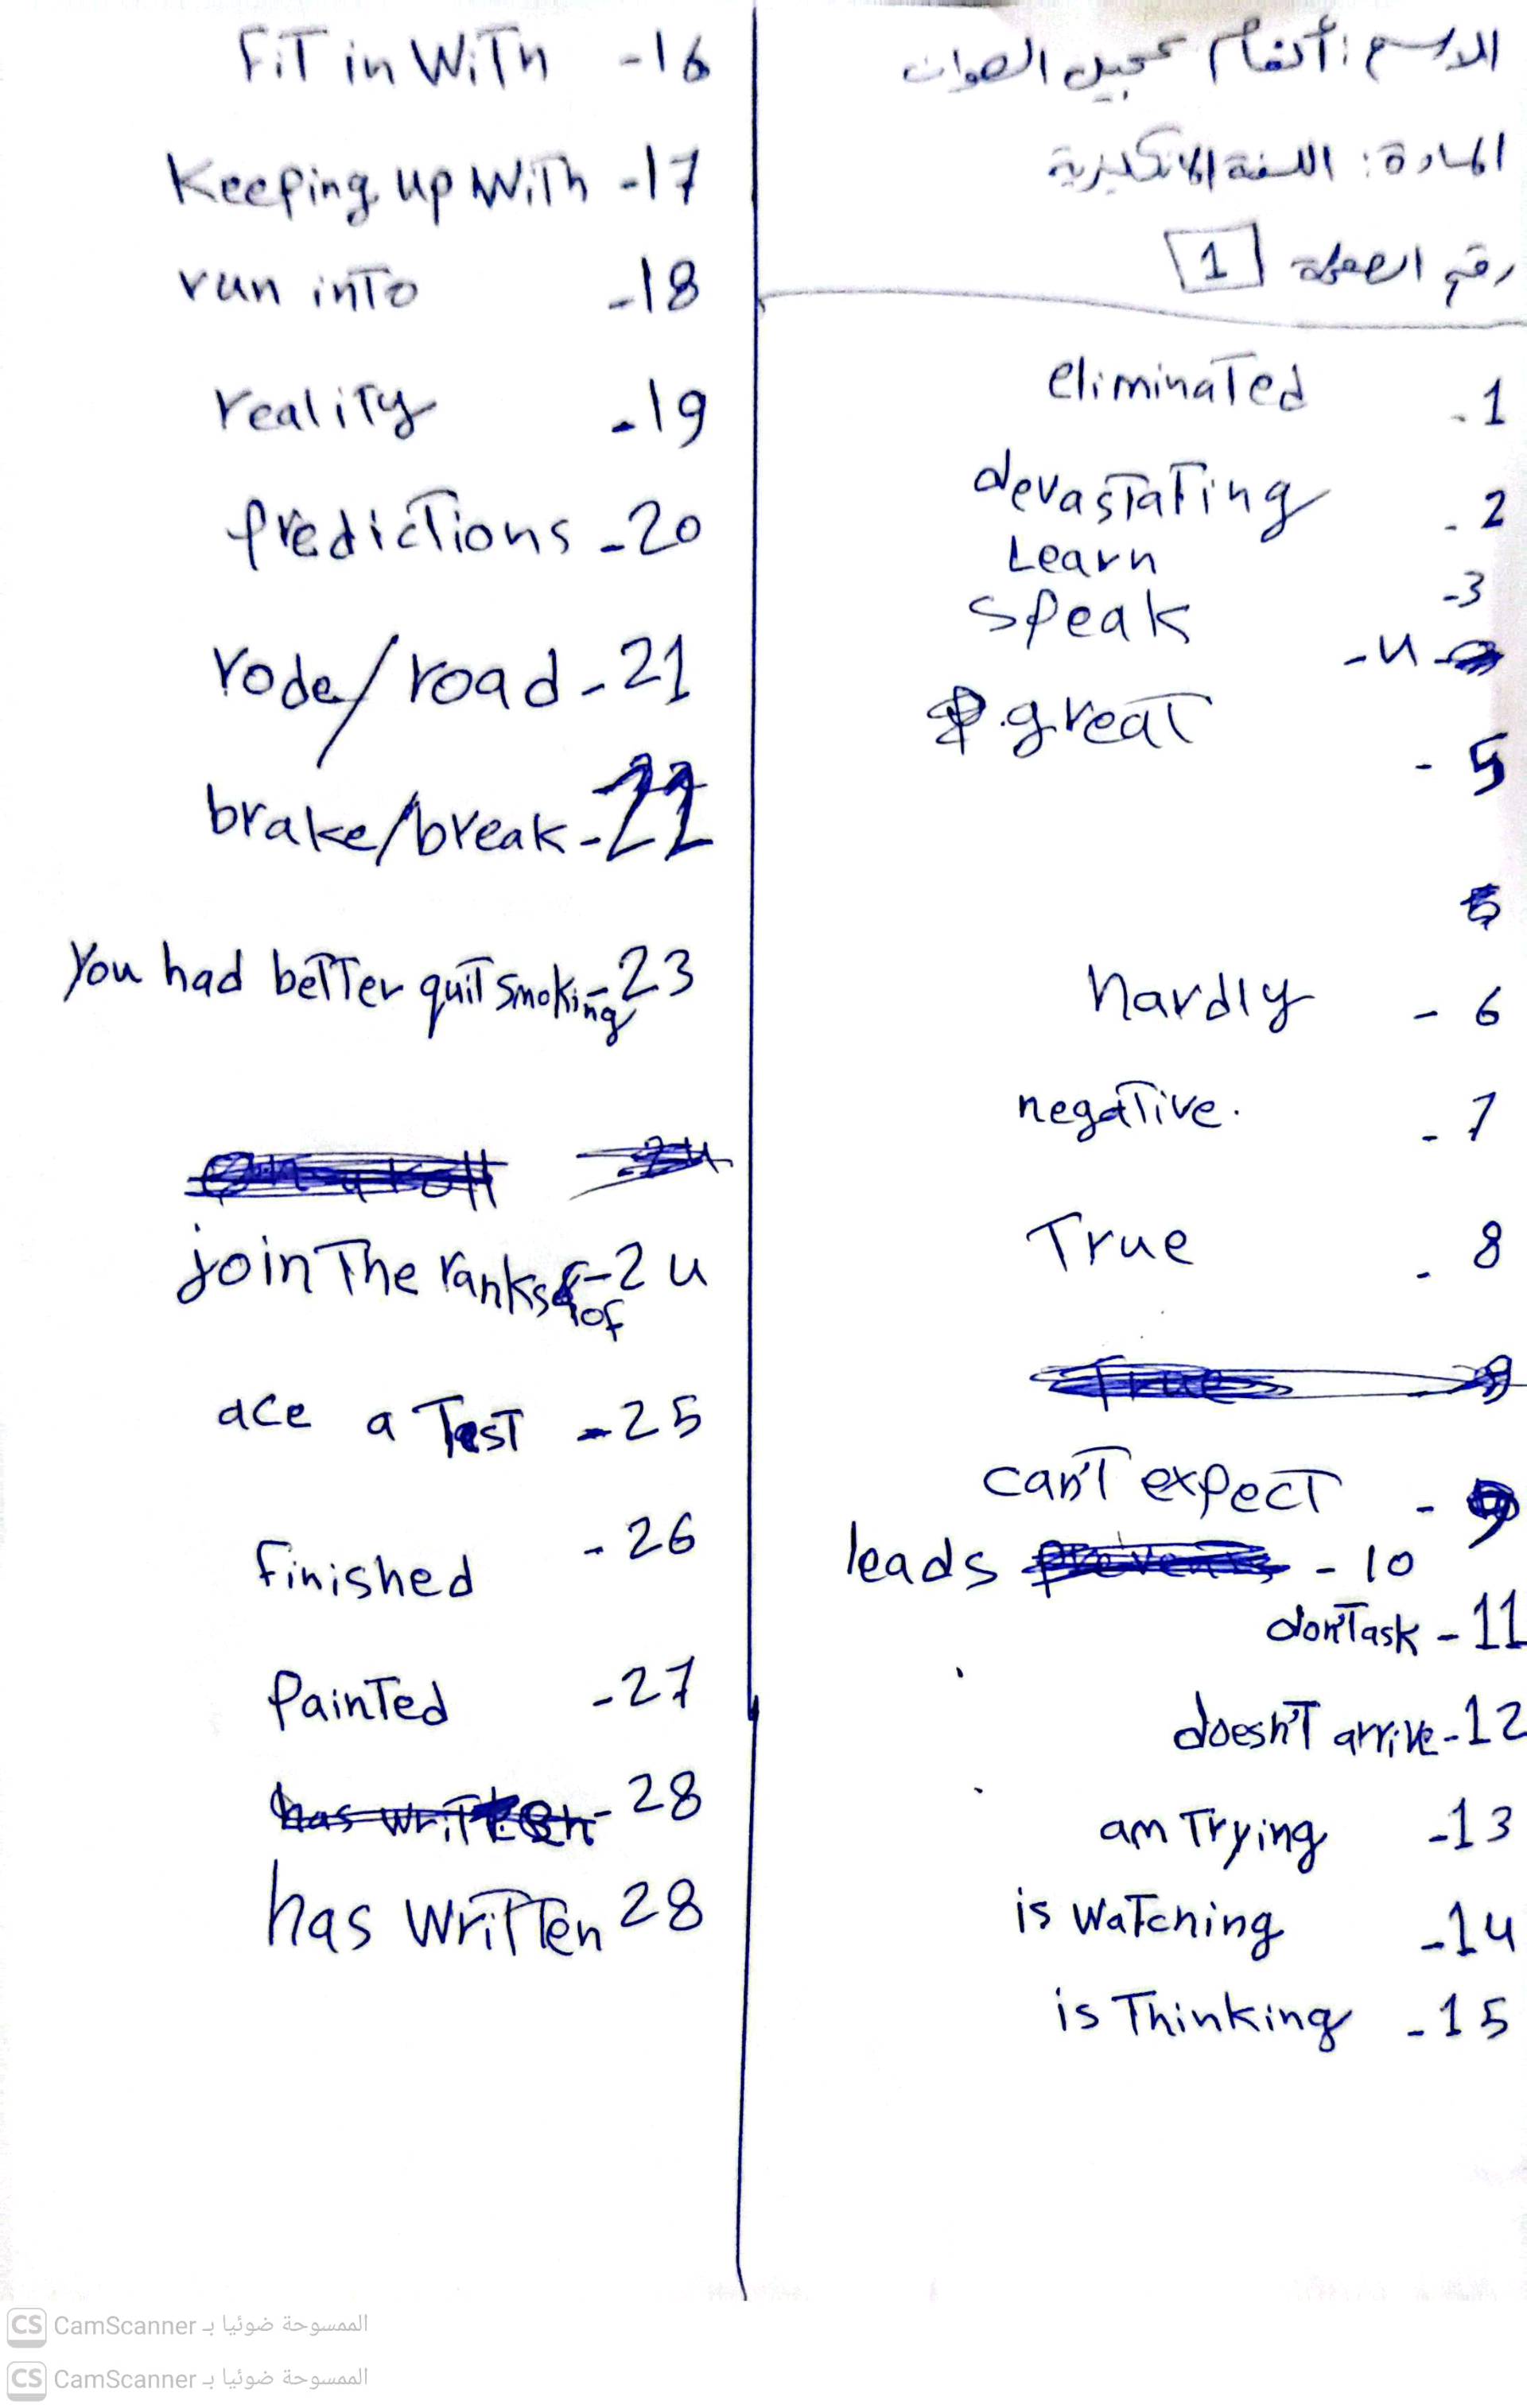 الاسم: أنغام عجيل الصوان
المادة: اللغة الانكليزية
رقم الصفحة 1
1- eliminated
2- devastating
3- Learn
4- speak
5- great
6- hardly
7- negative.
8- True
9- can't expect
10- leads
11- don't ask
12- doesn't arrive
13- am Trying
14- is watching
15- is Thinking
16- Fit in with
17- Keeping up with
18- run into
19- reality
20- predictions
21- rode/road
22- brake/break
23- You had better quit smoking
24- join The ranks of
25- ace a Test
26- finished
27- Painted
28- has written
28 has written
CS CamScanner الممسوحة ضوئيا بـ
CS CamScanner الممسوحة ضوئيا بـ